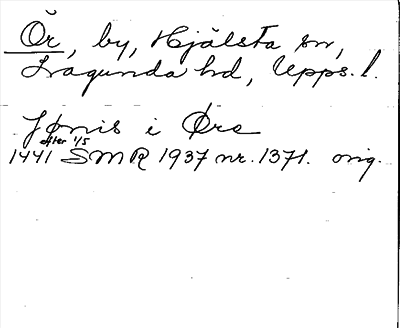 Ör, by, Hjälsta sn,
Lagunda hd, Upps. l.
Jønis i Øra
efter 1/5
1441 SMR 1937 nr. 1371. orig.